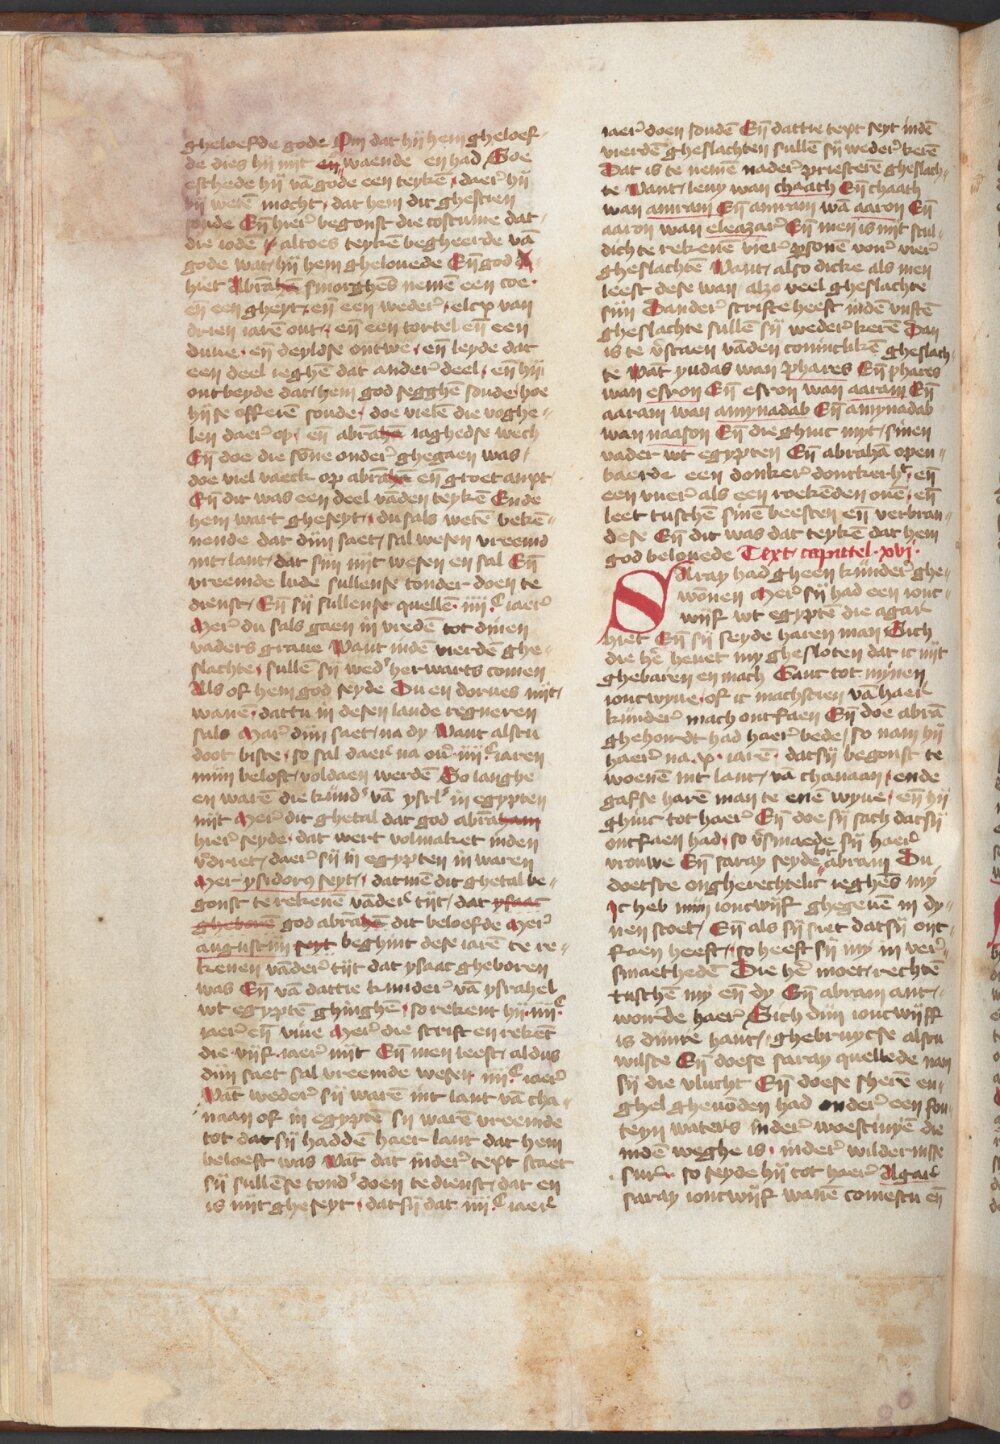 gheloefde gode Om dat hij hem gheloef-
de dies hij nijt en waende en had Doe
eschede hij vā gode een teykē daer̄ hij
bij wetē mocht dat hem dit ghescien
soude Eñ hier̄ begonst die costume dat
die ioden altoes teykē begheerde vā
gode wat hij hem ghelouede Eñ god
hiet Abrāhā smorghes nemē een coe
eñ een gheyt eñ een weder̄ elcx van
drien iarē out eñ een tortel eñ een
duue eñ deyldse ontwe eñ leyde dat
een deel ieghē dat ander̄ deel eñ hij
ontbeyde dat hem god segghē soude hoe
hijse offerē soude doe vielē die voghe-
len daer̄ op eñ abrāhā iaghedse wech
Eñ doe die sōne onder̄ ghegaen was
doe viel vaeck op abrāhā eñ groet anxt
Eñ dit was een deel vādēn teykē Ende
hem wart gheseyt du sals wetē bekē-
nende dat dijn saet sal wesen vreemd
int lant dat sijn nijt wesen en sal Eñ
vreemde lude sullense tonder doen te
dienst Eñ sij sullense quellē iiijͨ iaer̄
Mer̄ du sals gaen in vredē tot dinen
vaders graue Want indē vierdē ghe-
slachte sullē sij wed' herwarts comen
Als of hem god seyde Du en dorues nijt
wanē dattu in desen lande regneren
sals Mar̄ dijn saet na dy Want alstu
doot biste so sal daer̄ na ou' iiijͨ iaren
mijn belofte voldaen werdē So langhe
en warē die kīnd' vā ysrl' in egypten
nijt Mer̄ dit ghetal dat god abrāham
hier̄ seyde dat wert volmaket inden
v̄driet daer̄ sij in egypten in waren
Mer ysidorus seyt datmē dit ghetal be-
gonst te rekenē vāder̄ tijt dat ysaac
gheborē god abrāhē dit beloefde Mer̄
augustijn seyt beghint dese iarē te re-
kenen vāder̄ tijt dat ysaac gheboren
was Eñ vā dattie kinder̄ vā ysrahel
wt egyptē ghinghē so rekent hij iiijͨ
iaer̄ eñ viue Mer̄ die scrift en rekēt
die vijf iaer̄ nijt Eñ men leest aldus
dijn saet sal vreemde wesen iiijͨ iaer̄
Wat weder̄ sij warē int lant vā cha-
naan of in egyptē sij warē vreemde
tot dat sij haddē haer lant dat hem
beloeft was Wat dat inder̄ text staet
sij sullēse tond' doen te dienst dat en
is nijt gheseyt datsij dat iiijͨ iaer̄
iaer̄ doen soudē Eñ dattie text seyt indē
vierdē gheslachten sullē sij weder̄ kerē
Dat is te nemē nader̄ priesterē gheslach-
te Want leuy wan chaath Eñ chaath
wan amram Eñ amram wā aaron Eñ
aaron wan eleazar̄ Eñ men is nijt scul-
dich te rekenē vier̄ psonē vour̄ vier̄
gheslachtē Want also dicke als men
leest dese wan alzo veel gheslachte
sijn Dander̄ scrifte heeft indē vijftē
gheslachte sullē sij weder̄ kerē Dan
is te v̄staen vāden conincklikē gheslach-
te Wāt yudas wan phares Eñ phares
wan esron Eñ esron wan aaram Eñ
aaram wan amynadab Eñ amynadab
wan naason Eñ die ghinc myt sinen
vader wt egypten Eñ abrahā open-
baerde een donker̄ donckerh' eñ
een vier̄ als een roekēden ouē eñ
leet tusschē sinē beesten eñ verbran-
dese Eñ dit was dat teykē dat hem
god belouede Text capittel xvj
Saray had gheen kīnder̄ ghe-
wōnen Mer̄ sij had een ionc-
wijf wt egyptē die agar
hiet Eñ sij seyde haren man Sich
die hē heuet my ghesloten dat ic nijt
ghebaren en mach Ganc tot mijnen
ioncwyue of ic machscien vā haer
kīnder̄ mach ontfaen Eñ doe abrā
ghehoirdt had haer̄ bede so nam hij
haer̄ na x iarē datsij begonst te
woenē int lant vā chanaan ende
gafse harē man te enē wyue eñ hij
ghinc tot haer̄ Eñ doe sij sach datsij
ontfaen had so v̄smaede sij haer̄
vrouwe Eñ saray seyde tot abram Du
doetste ongherechtelic ieghēs my
Ic heb mijn ioncwijf ghegeuē in dy-
nen scoet Eñ als sij siet datsij ont-
faen heeft so heeft sij my in ver̄-
smaethedē Die hē moet rechtē
tusschē my eñ dy Eñ abram ant-
worde haer̄ Sich dijn ioncwijff
is dijnre hant ghebruycse alstu
wilste Eñ doese saray quellede nam
sij die vlucht Eñ doese sherē en-
ghel gheuōden had onder̄ een fon-
teyn waters inder̄ woestinyē die
indē weghe is inder̄ wildernisse
sur so seyde hij tot haer̄ Agar
saray ioncwijf wanē comestu eñ